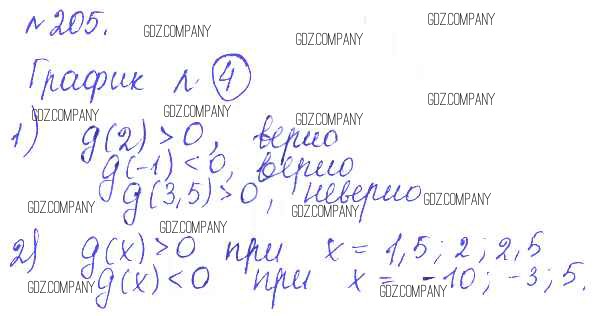 №205.
График № 4
1) g(2) > 0, верно
g(-1) < 0, верно
g(3,5) > 0, неверно
2) g(x) > 0 при x = 1,5; 2; 2,5
g(x) < 0 при x = -10; -3; 5.
GDZ.COMPANY
GDZ.COMPANY
GDZ.COMPANY
GDZ.COMPANY
GDZ.COMPANY
GDZ.COMPANY
GDZ.COMPANY
GDZ.COMPANY
GDZ.COMPANY
GDZ.COMPANY
GDZ.COMPANY
GDZ.COMPANY
GDZ.COMPANY
GDZ.COMPANY